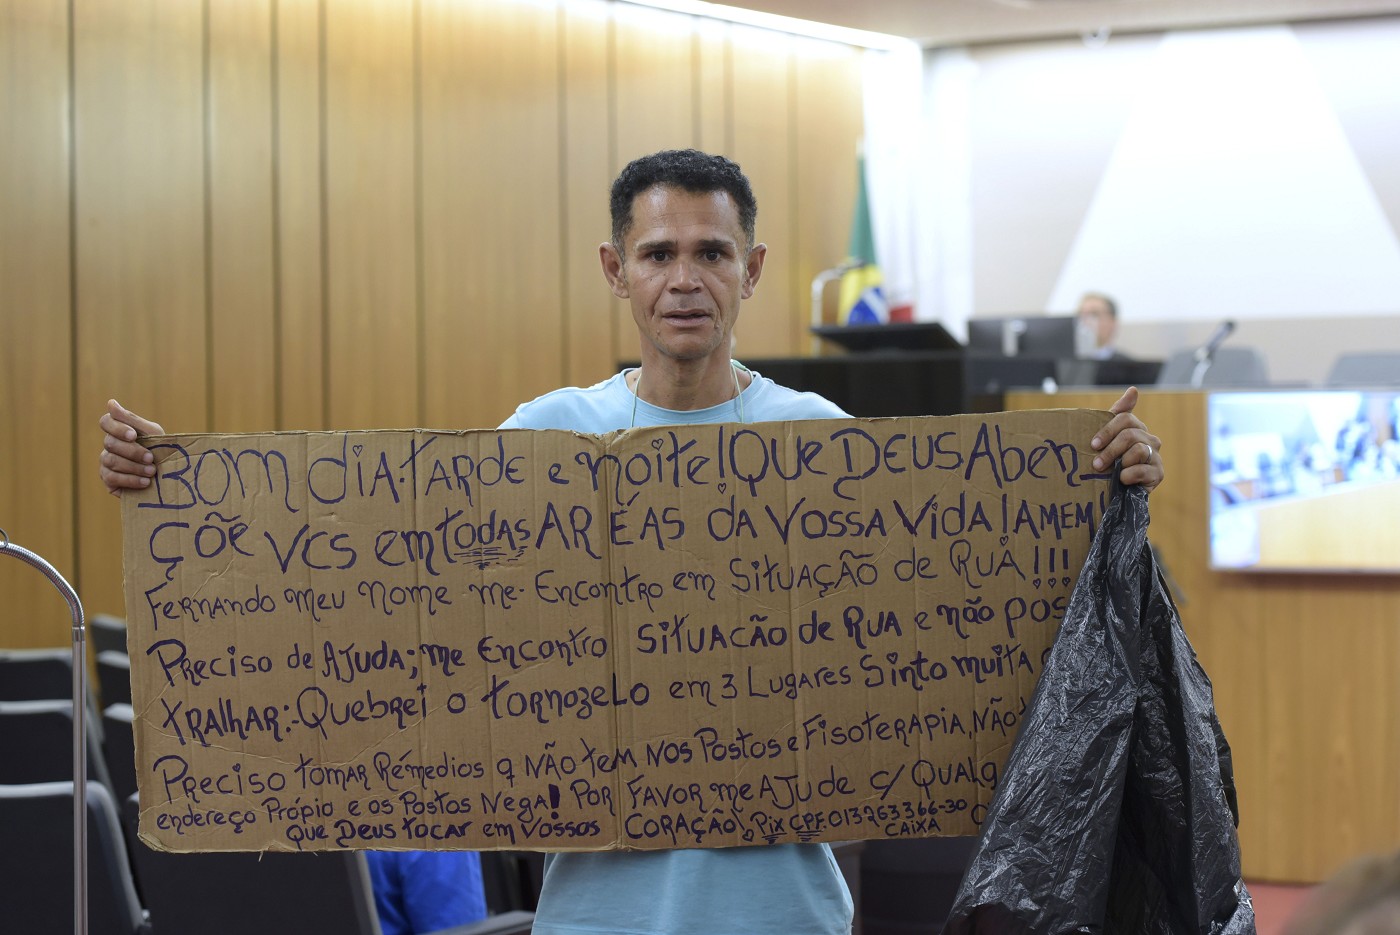 BOM DIA.TARDE e NOite! QUe DEUS Aben_
ÇÕE VCS em TODAS AR ÉAS DA VOSSA VIDA! AMEM!
FERNANDO meu Nome me. Encontro em SITUAÇÃO de RUA!!!
PRECISO de AJUDA; me Encontro SITUACÃO de RUA e não pos
TRALHAR: Quebrei o TORNOZELO em 3 LUGARES Sinto muita
PRECISO tomar Rémedios q NÃO tem NOS Postos e FISOTERAPIA, NÃO
endereço Própio e os Postos Nega! Por FAVOR me AJude c/ QUALQ
que DEUS TOCAR em VOSSOS CORAÇÃO! Pix CPF. 013263366-30
CAIXA